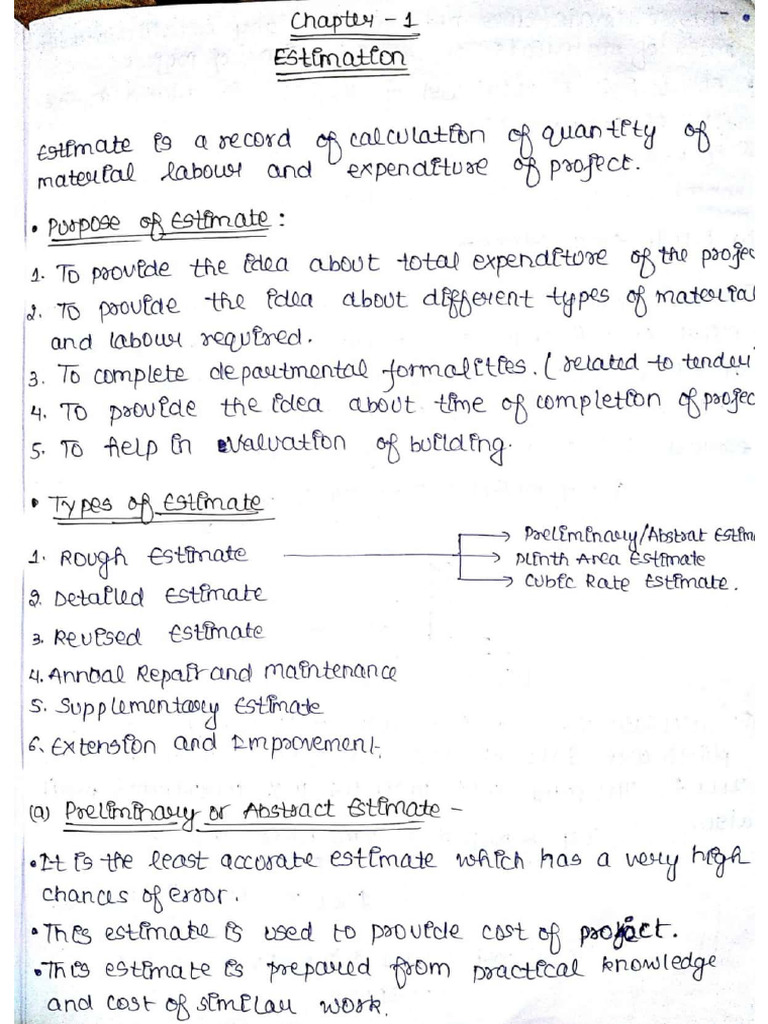 Chapter - 1
Estimation
Estimate is a record of calculation of quantity of
material labour and expenditure of project.
• Purpose of Estimate :
1. To provide the idea about total expenditure of the projec
2. To provide the idea about different types of material
and labour required.
3. To complete departmental formalities. ( related to tender
4. To provide the idea about time of completion of projec
5. To help in evaluation of building.
• Types of Estimate
1. Rough Estimate
→ Preliminary/Abstrat Estim
→ Plinth Area Estimate
→ Cubic Rate Estimate.
2. Detailed Estimate
3. Revised Estimate
4. Annual Repair and maintenance
5. Supplementary Estimate
6. Extension and Improvement
(a) Preliminary or Abstract Estimate -
• It is the least accorate estimate which has a very high
chances of error.
• This estimate is used to provide cost of project.
• This estimate is prepared from practical knowledge
and cost of similar work.